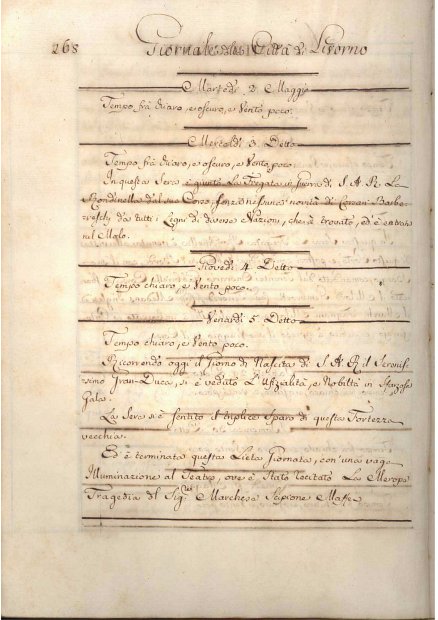 268 Giornale della Città di Livorno
Martedì 2 Maggio
Tempo frà chiaro, e oscuro, e Vento poco.
Mercoldì 3 Detto
Tempo frà chiaro, e oscuro, e Vento poco.
In questa Sera è giunta La Fregata in guerra di S. A. R. La
Rondinella dal suo Corso, senz'di nessuna novità di Corsari Barba=
reschi, da tutti i Legni di diverse Nazioni, che à trovato, ed è entrata
nel Molo.
Giovedì 4 Detto
Tempo chiaro, e Vento poco.
Venardì 5 Detto
Tempo chiaro, e Vento poco.
Ricorrendo oggi il Giorno di Nascita di S. A. R. il Serenis=
simo Gran-Duca, si è veduto L'Ufizialità, e Nobiltà in sfarzosa
Gala.
La Sera si è sentito il triplice Sparo di questa Fortezza
vecchia.
Ed è terminata questa Lieta Giornata, con una vaga
Illuminazione al Teatro, ove è Stato recitato La Merope
Tragedia del Sig. Marchese Scipione Maffei